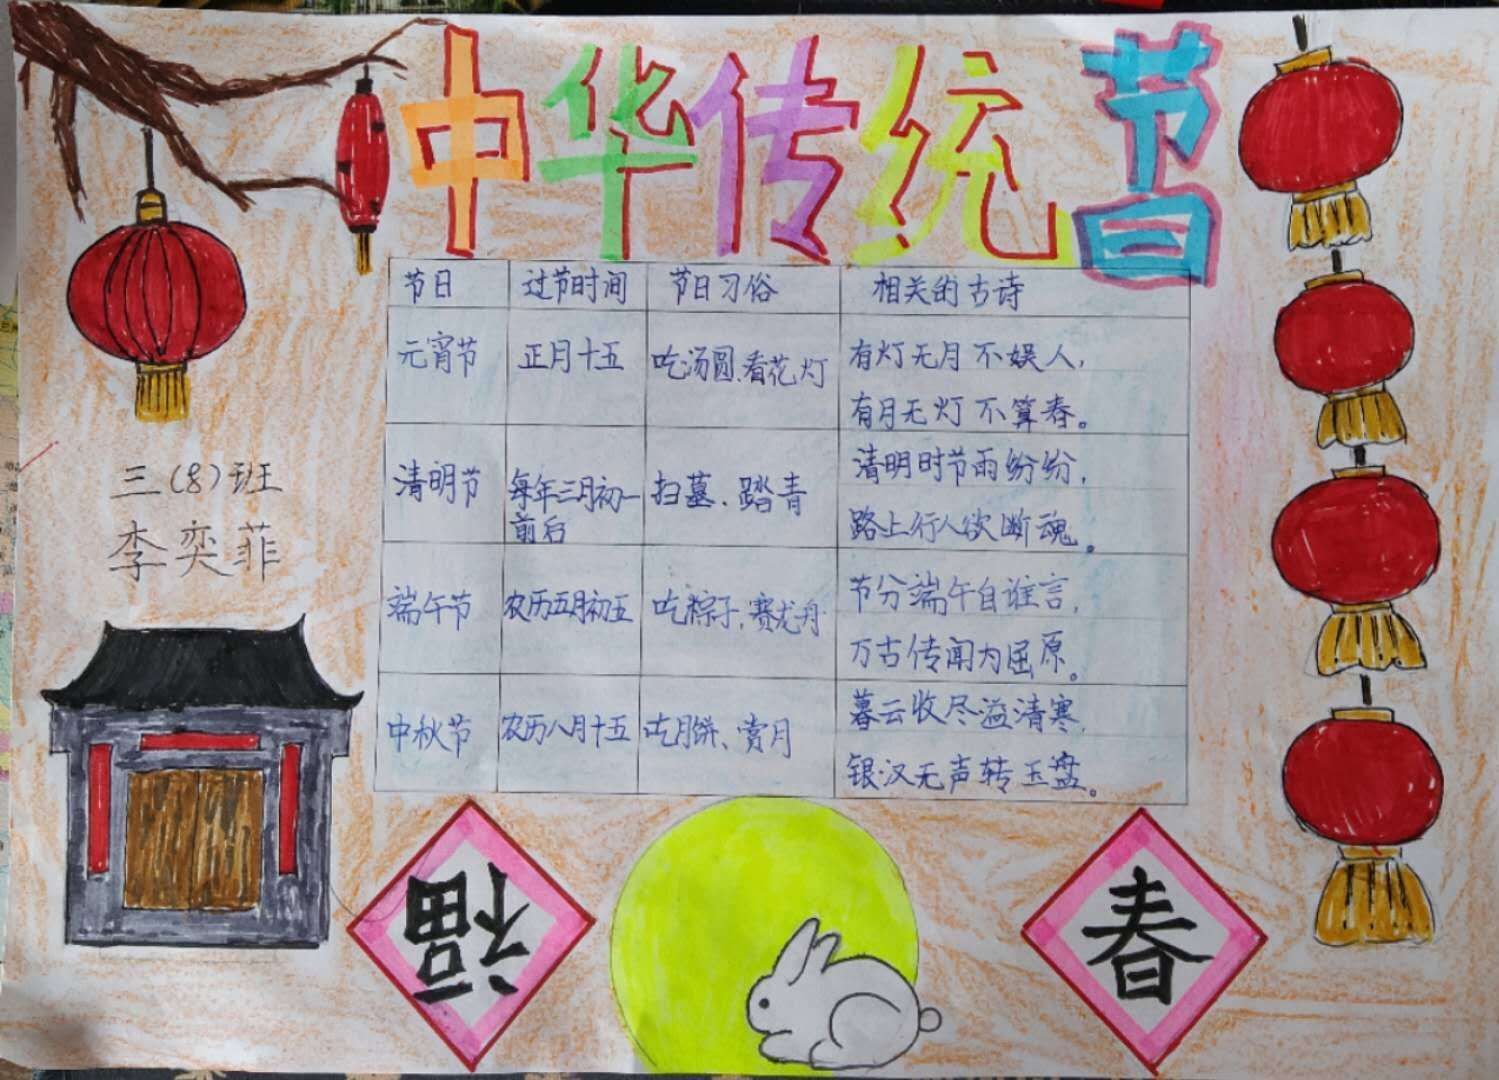 中华传统节日
节日 过节时间 节日习俗 相关的古诗
元宵节 正月十五 吃汤圆、看花灯 有灯无月不娱人，
有月无灯不算春。
清明节 每年三月初一 扫墓、踏青 清明时节雨纷纷，
前后
路上行人欲断魂。
端午节 农历五月初五 吃粽子，赛龙舟 节分端午自谁言，
万古传闻为屈原。
中秋节 农历八月十五 吃月饼、赏月 暮云收尽溢清寒，
银汉无声转玉盘。
三（8）班
李奕菲
福
春